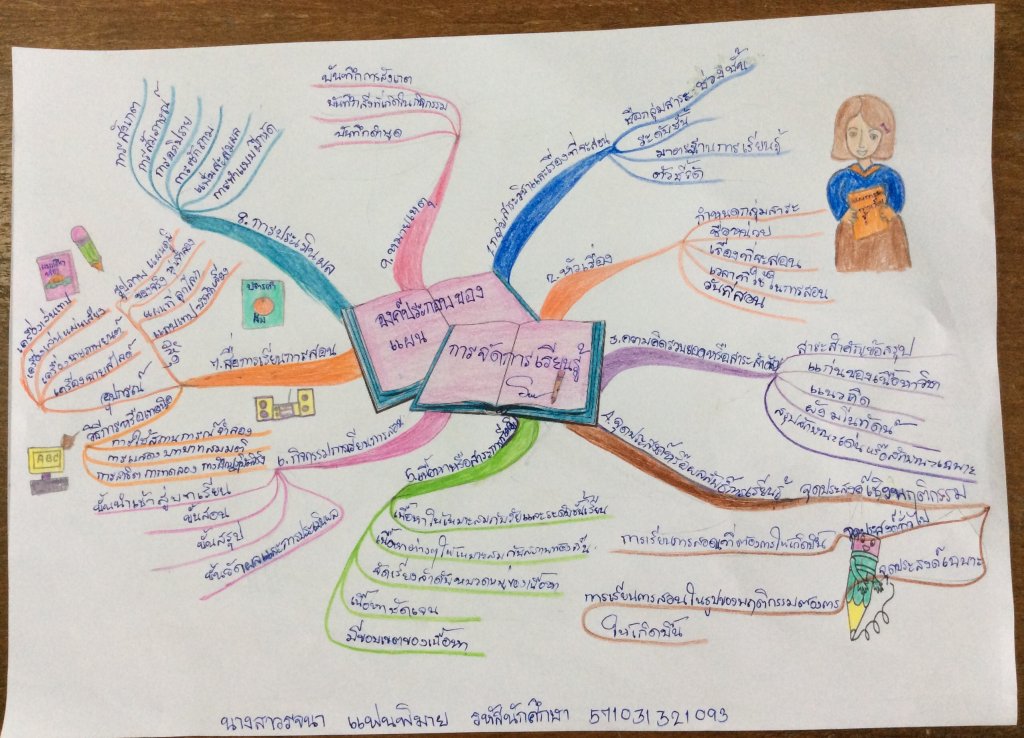 องค์ประกอบของ
แผน
การจัดการเรียนรู้
1.กลุ่มสาระวิชาและเรื่องที่จะสอน
ชื่อกลุ่มสาระ ช่วงชั้น
ระดับชั้น
มาตรฐานการเรียนรู้
ตัวชี้วัด
2.หัวเรื่อง
กำหนดกลุ่มสาระ
ชื่อหน่วย
เรื่องที่จะสอน
เวลาที่ใช้ในการสอน
วันที่สอน
3.ความคิดรวบยอดหรือสาระสำคัญ
สาระสำคัญข้อสรุป
แก่นของเนื้อหาวิชา
แนวคิด
ผังมโนทัศน์
สรุปลักษณะเด่นหรือลักษณะเฉพาะ
4.จุดประสงค์หรือผลลัพธ์การเรียนรู้
จุดประสงค์เชิงพฤติกรรม
จุดประสงค์ทั่วไป
การเรียนการสอนที่ต้องการให้เกิดขึ้น
จุดประสงค์เฉพาะ
การเรียนการสอนในรูปของพฤติกรรมต้องการ
ให้เกิดขึ้น
5.เนื้อหาหรือสาระการเรียนรู้
เนื้อหาให้เหมาะสมกับวัยและระดับชั้นเรียน
เนื้อหาต่างๆให้เหมาะสมกับสภาพท้องถิ่น
จัดเรียงลำดับหมวดหมู่ของเนื้อหา
เนื้อหาชัดเจน
มีขอบเขตของเนื้อหา
6.กิจกรรมการเรียนการสอน
ขั้นนำเข้าสู่บทเรียน
ขั้นสอน
ขั้นสรุป
ขั้นวัดผลและการประเมินผล
7.สื่อการเรียนการสอน
วัสดุ
รูปภาพ แผนภูมิ
ของจริง หุ่นจำลอง
แผนที่ ลูกโลก
อุปกรณ์
เครื่องเล่นเทป
เครื่องเล่นแผ่นเสียง
เครื่องฉายภาพยนต์
เครื่องฉายสไลด์
วิธีการหรือเทคนิค
การใช้สถานการณ์จำลอง
การแสดงบทบาทสมมุติ
การสาธิต การทดลอง
ABC
8.การประเมินผล
การสังเกต
การสัมภาษณ์
การอภิปราย
การซักถาม
แฟ้มสะสมผล
การทำแบบฝึกหัด
9.หมายเหตุ
บันทึกการสังเกต
บันทึกสิ่งที่เกิดในกิจกรรม
บันทึกคำพูด
นางสาวรจนา แฟนพิมาย รหัสนักศึกษา 571031321093